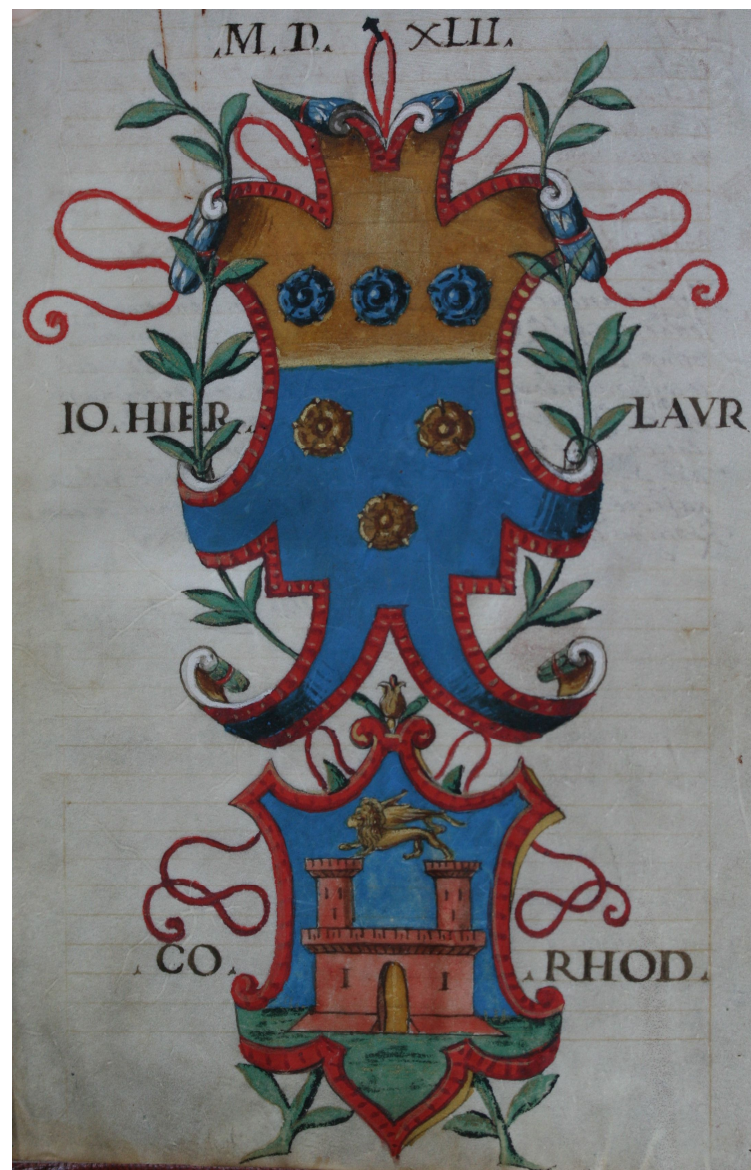 .M. D. XLII.
IO. HIER. LAVR
.CO. .RHOD.